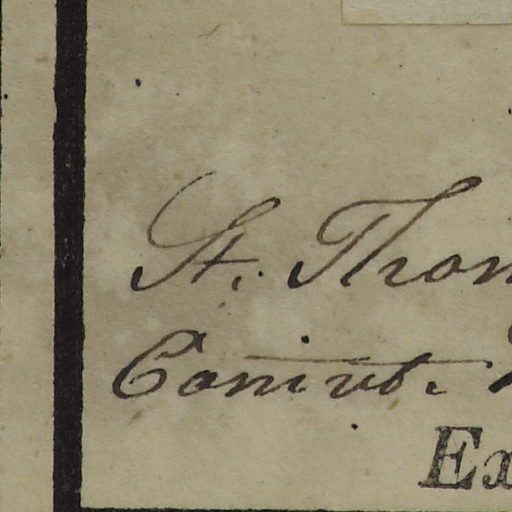 St. Thom
Comvt.
Ex